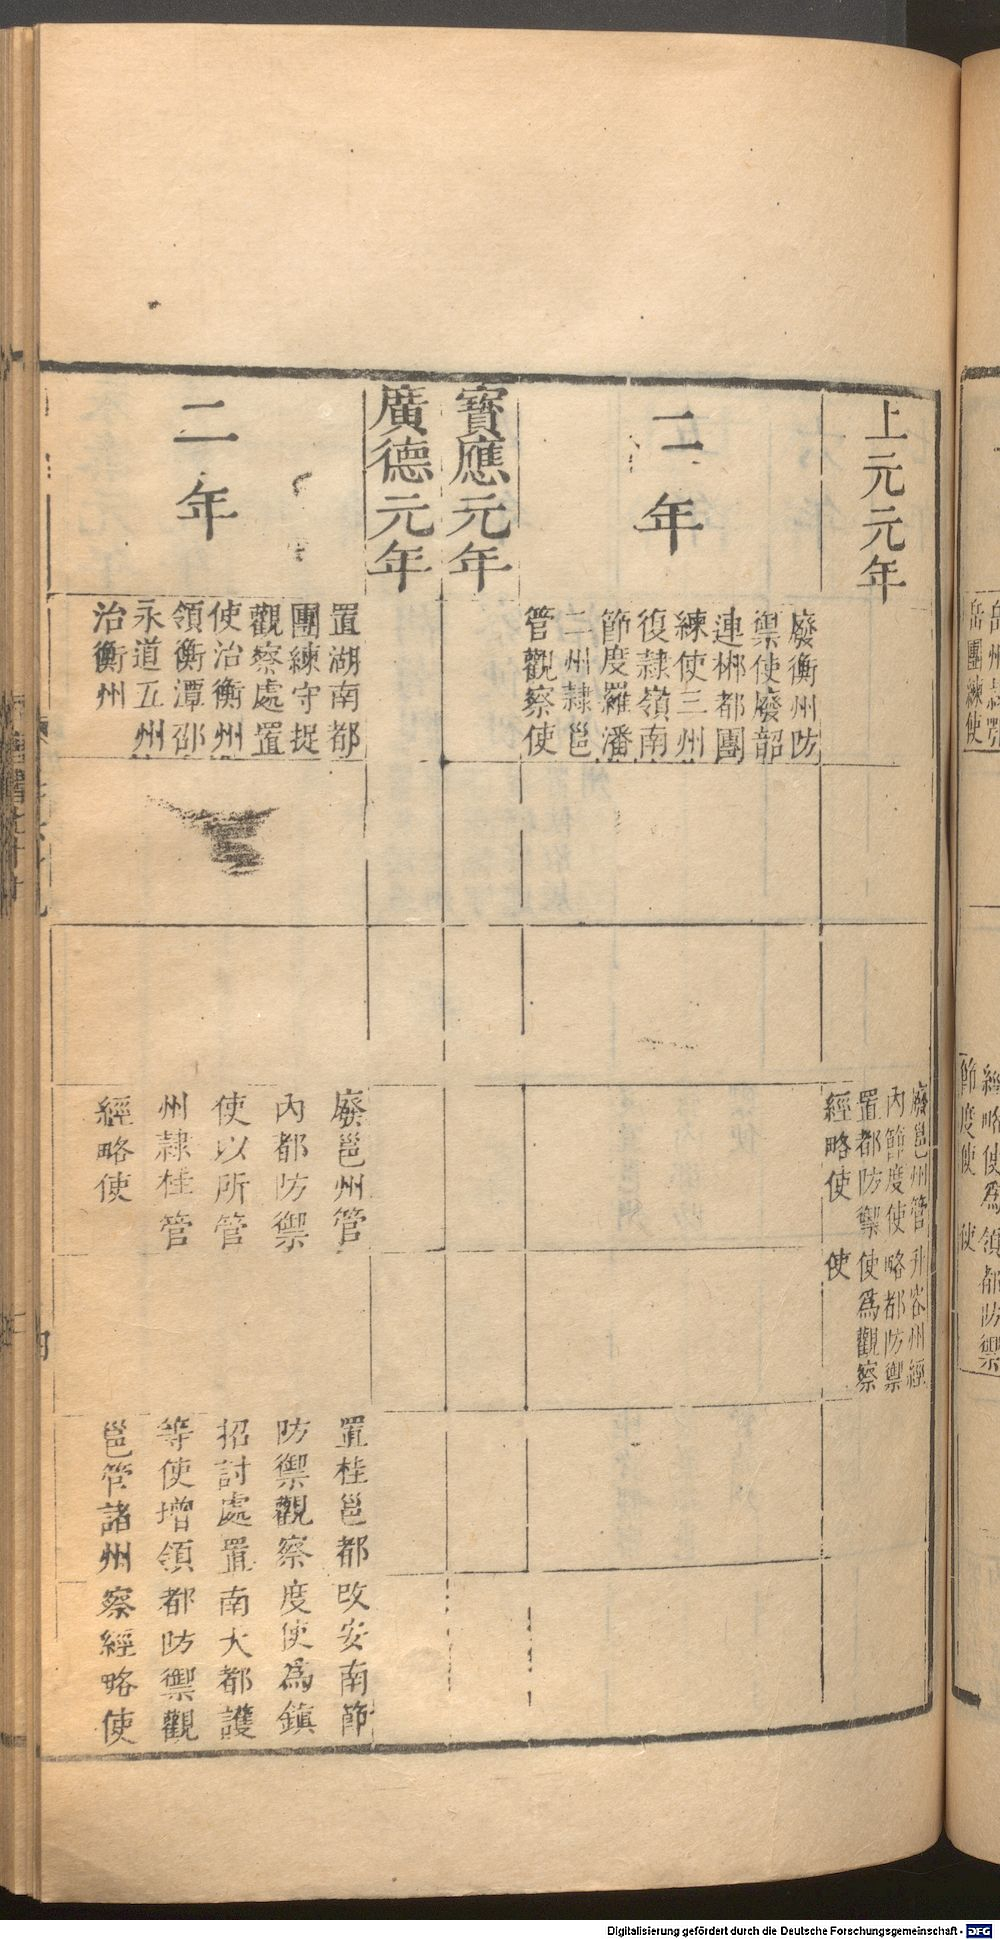 上元元年
廢邕州管
內節度使
置都防禦
經略使
升容州經
略都防禦
使爲觀察
使
二年
廢衡州防
禦使廢韶
連郴都團
練使三州
復隸嶺南
節度羅潘
二州隸邕
管觀察使
寶應元年
廣德元年
二年
置湖南都
團練守捉
觀察處置
使治衡州
領衡潭邵
永道五州
治衡州
廢邕州管
內都防禦
使以所管
州隸桂管
經略使
置桂邕都
防禦觀察
招討處置
等使增領
邕管諸州
改安南節
度使爲鎮
南大都護
都防禦觀
察經略使
岳團練使
經略使爲
節度使
領都防禦
使
Digitalisierung gefördert durch die Deutsche Forschungsgemeinschaft - DFG